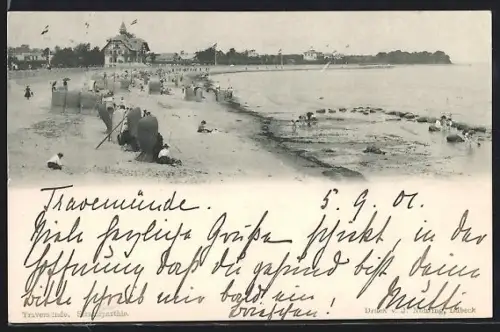 Travemünde. 5. 9. 01.
Viele herzliche Grüße schickt, in der
Hoffnung daß du gesund bist deine
bitte schreib mir bald ein Mutti
Briefchen!
Travemünde. Strandparthie.
Druck v. J. Nöhring, Lübeck